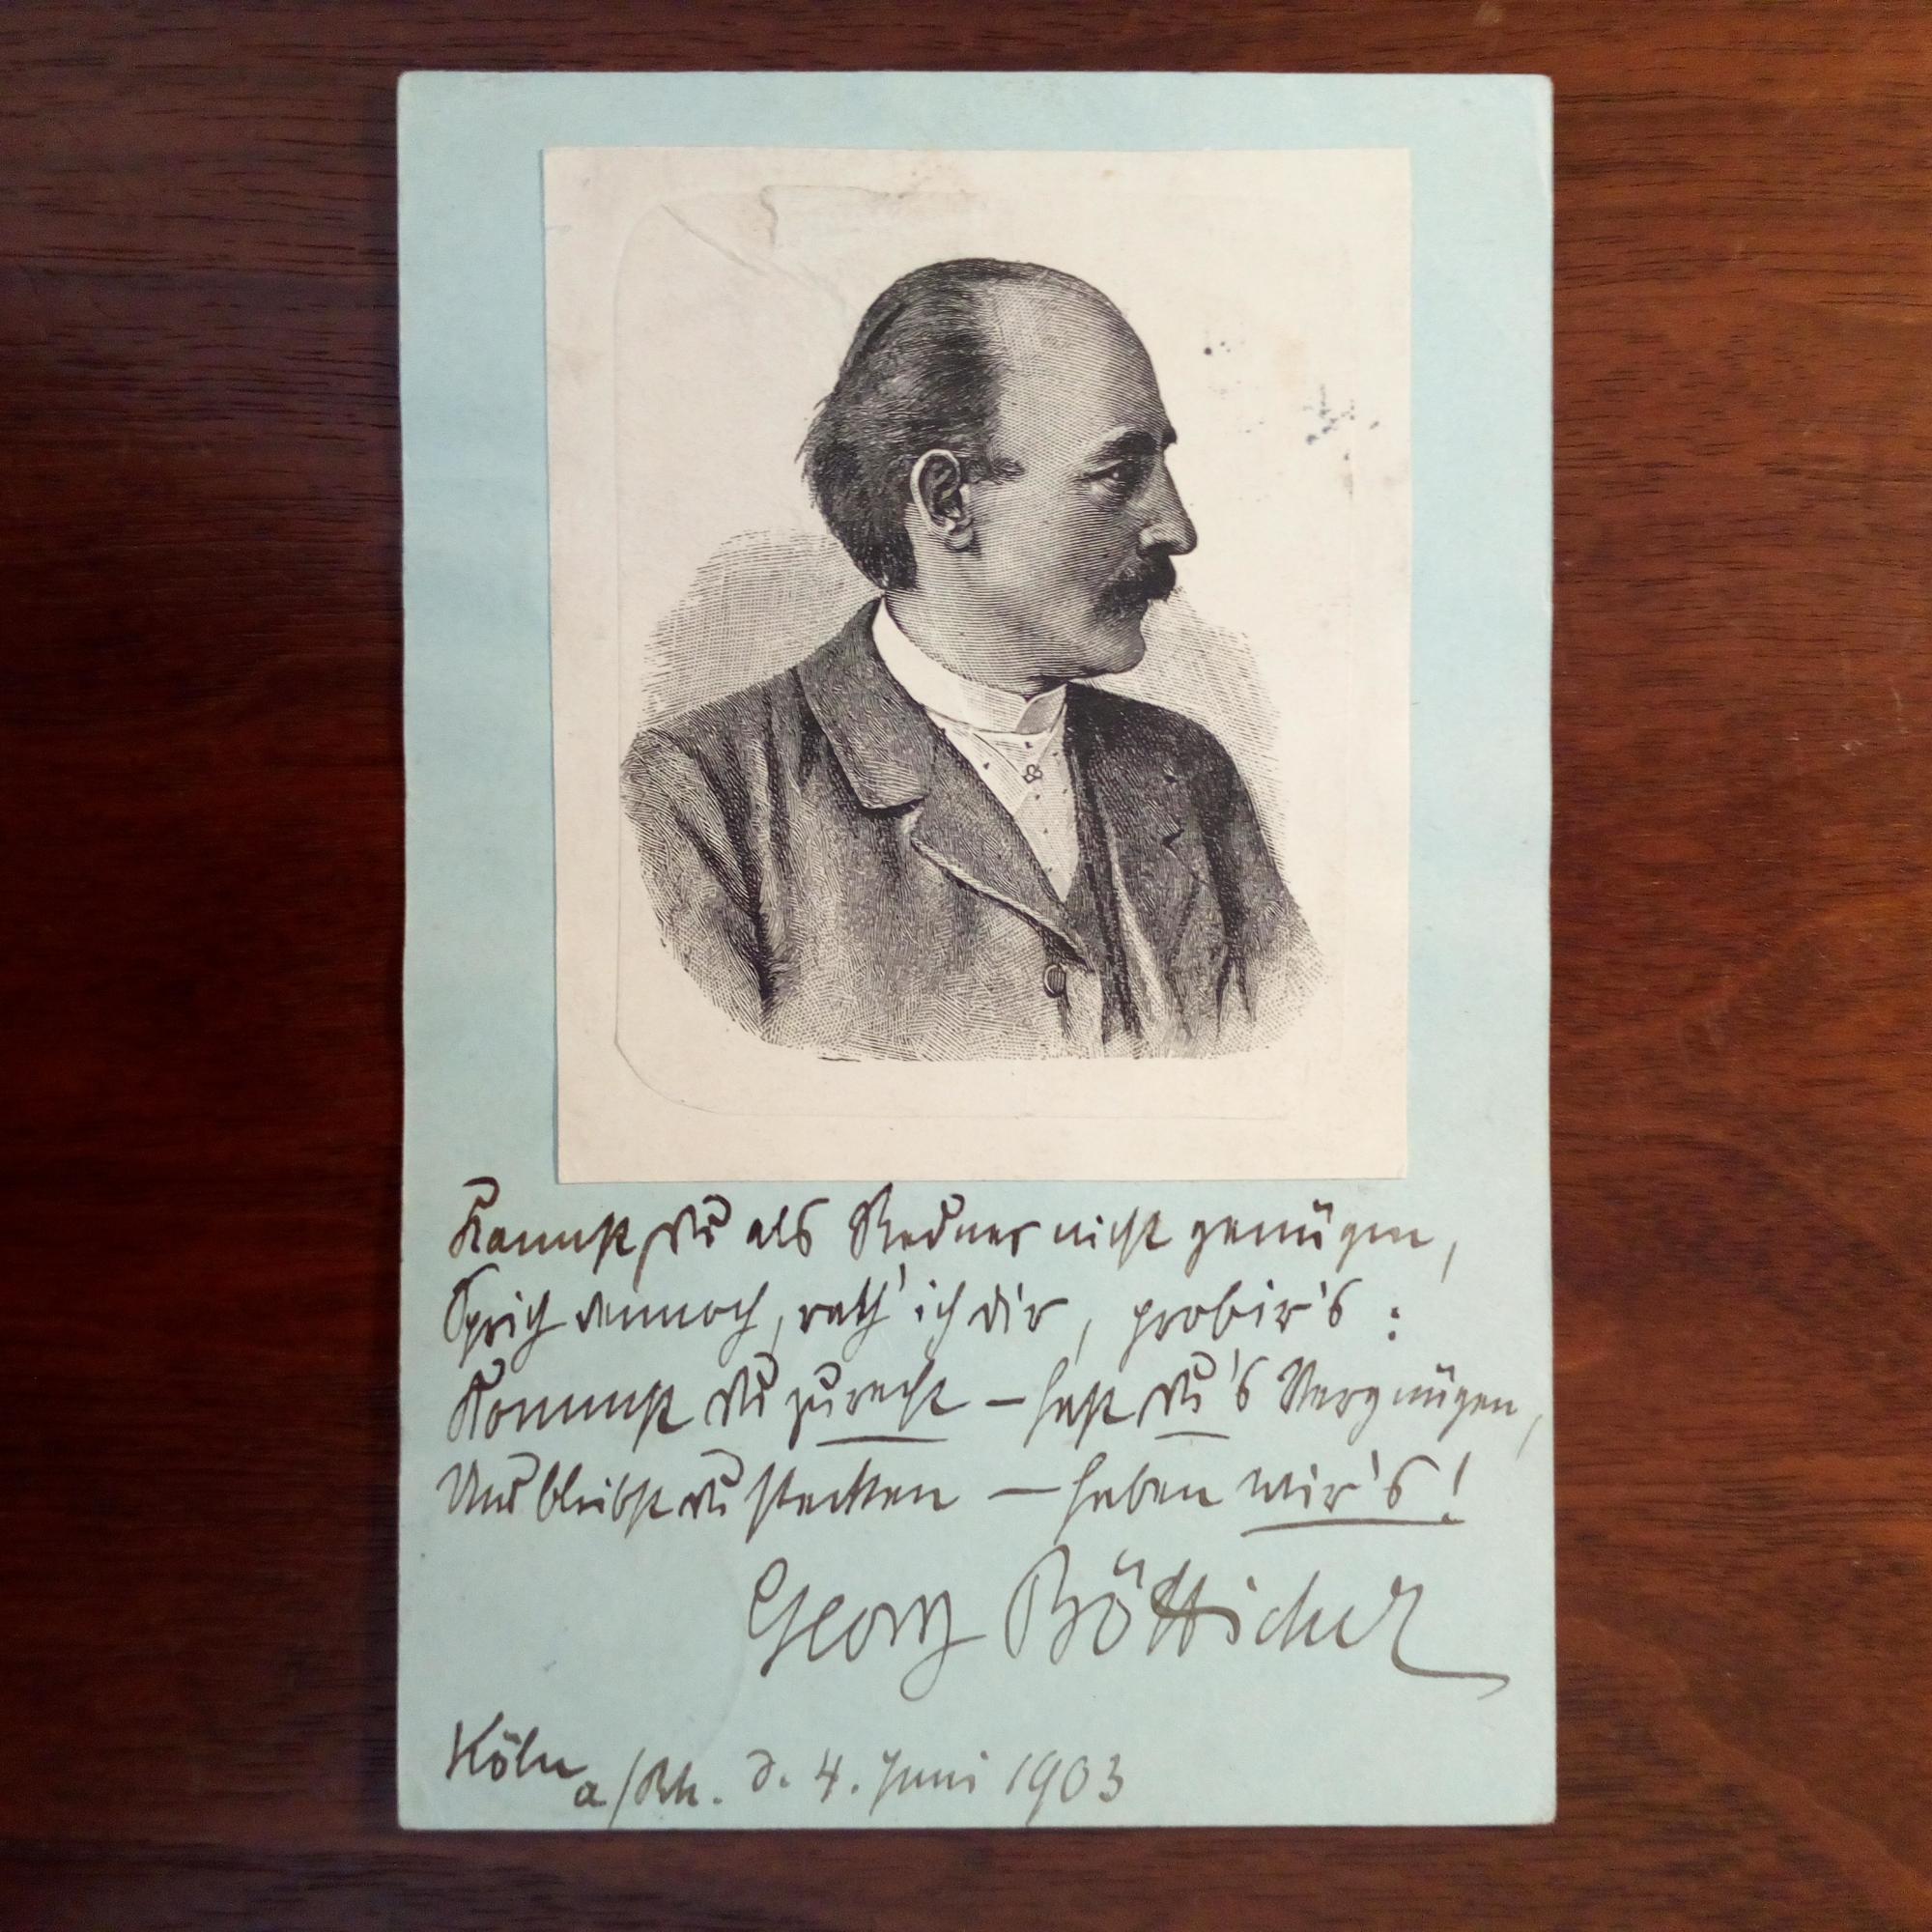 Kannst Du als Redner nicht genügen,
Sprich dennoch, rath' ich dir, probir's:
Kommst Du zurecht – hast Du's Vergnügen,
Und bleibst du stecken – haben wir's!
Georg Bötticher
Köln a/Rh. d. 4. Juni 1903